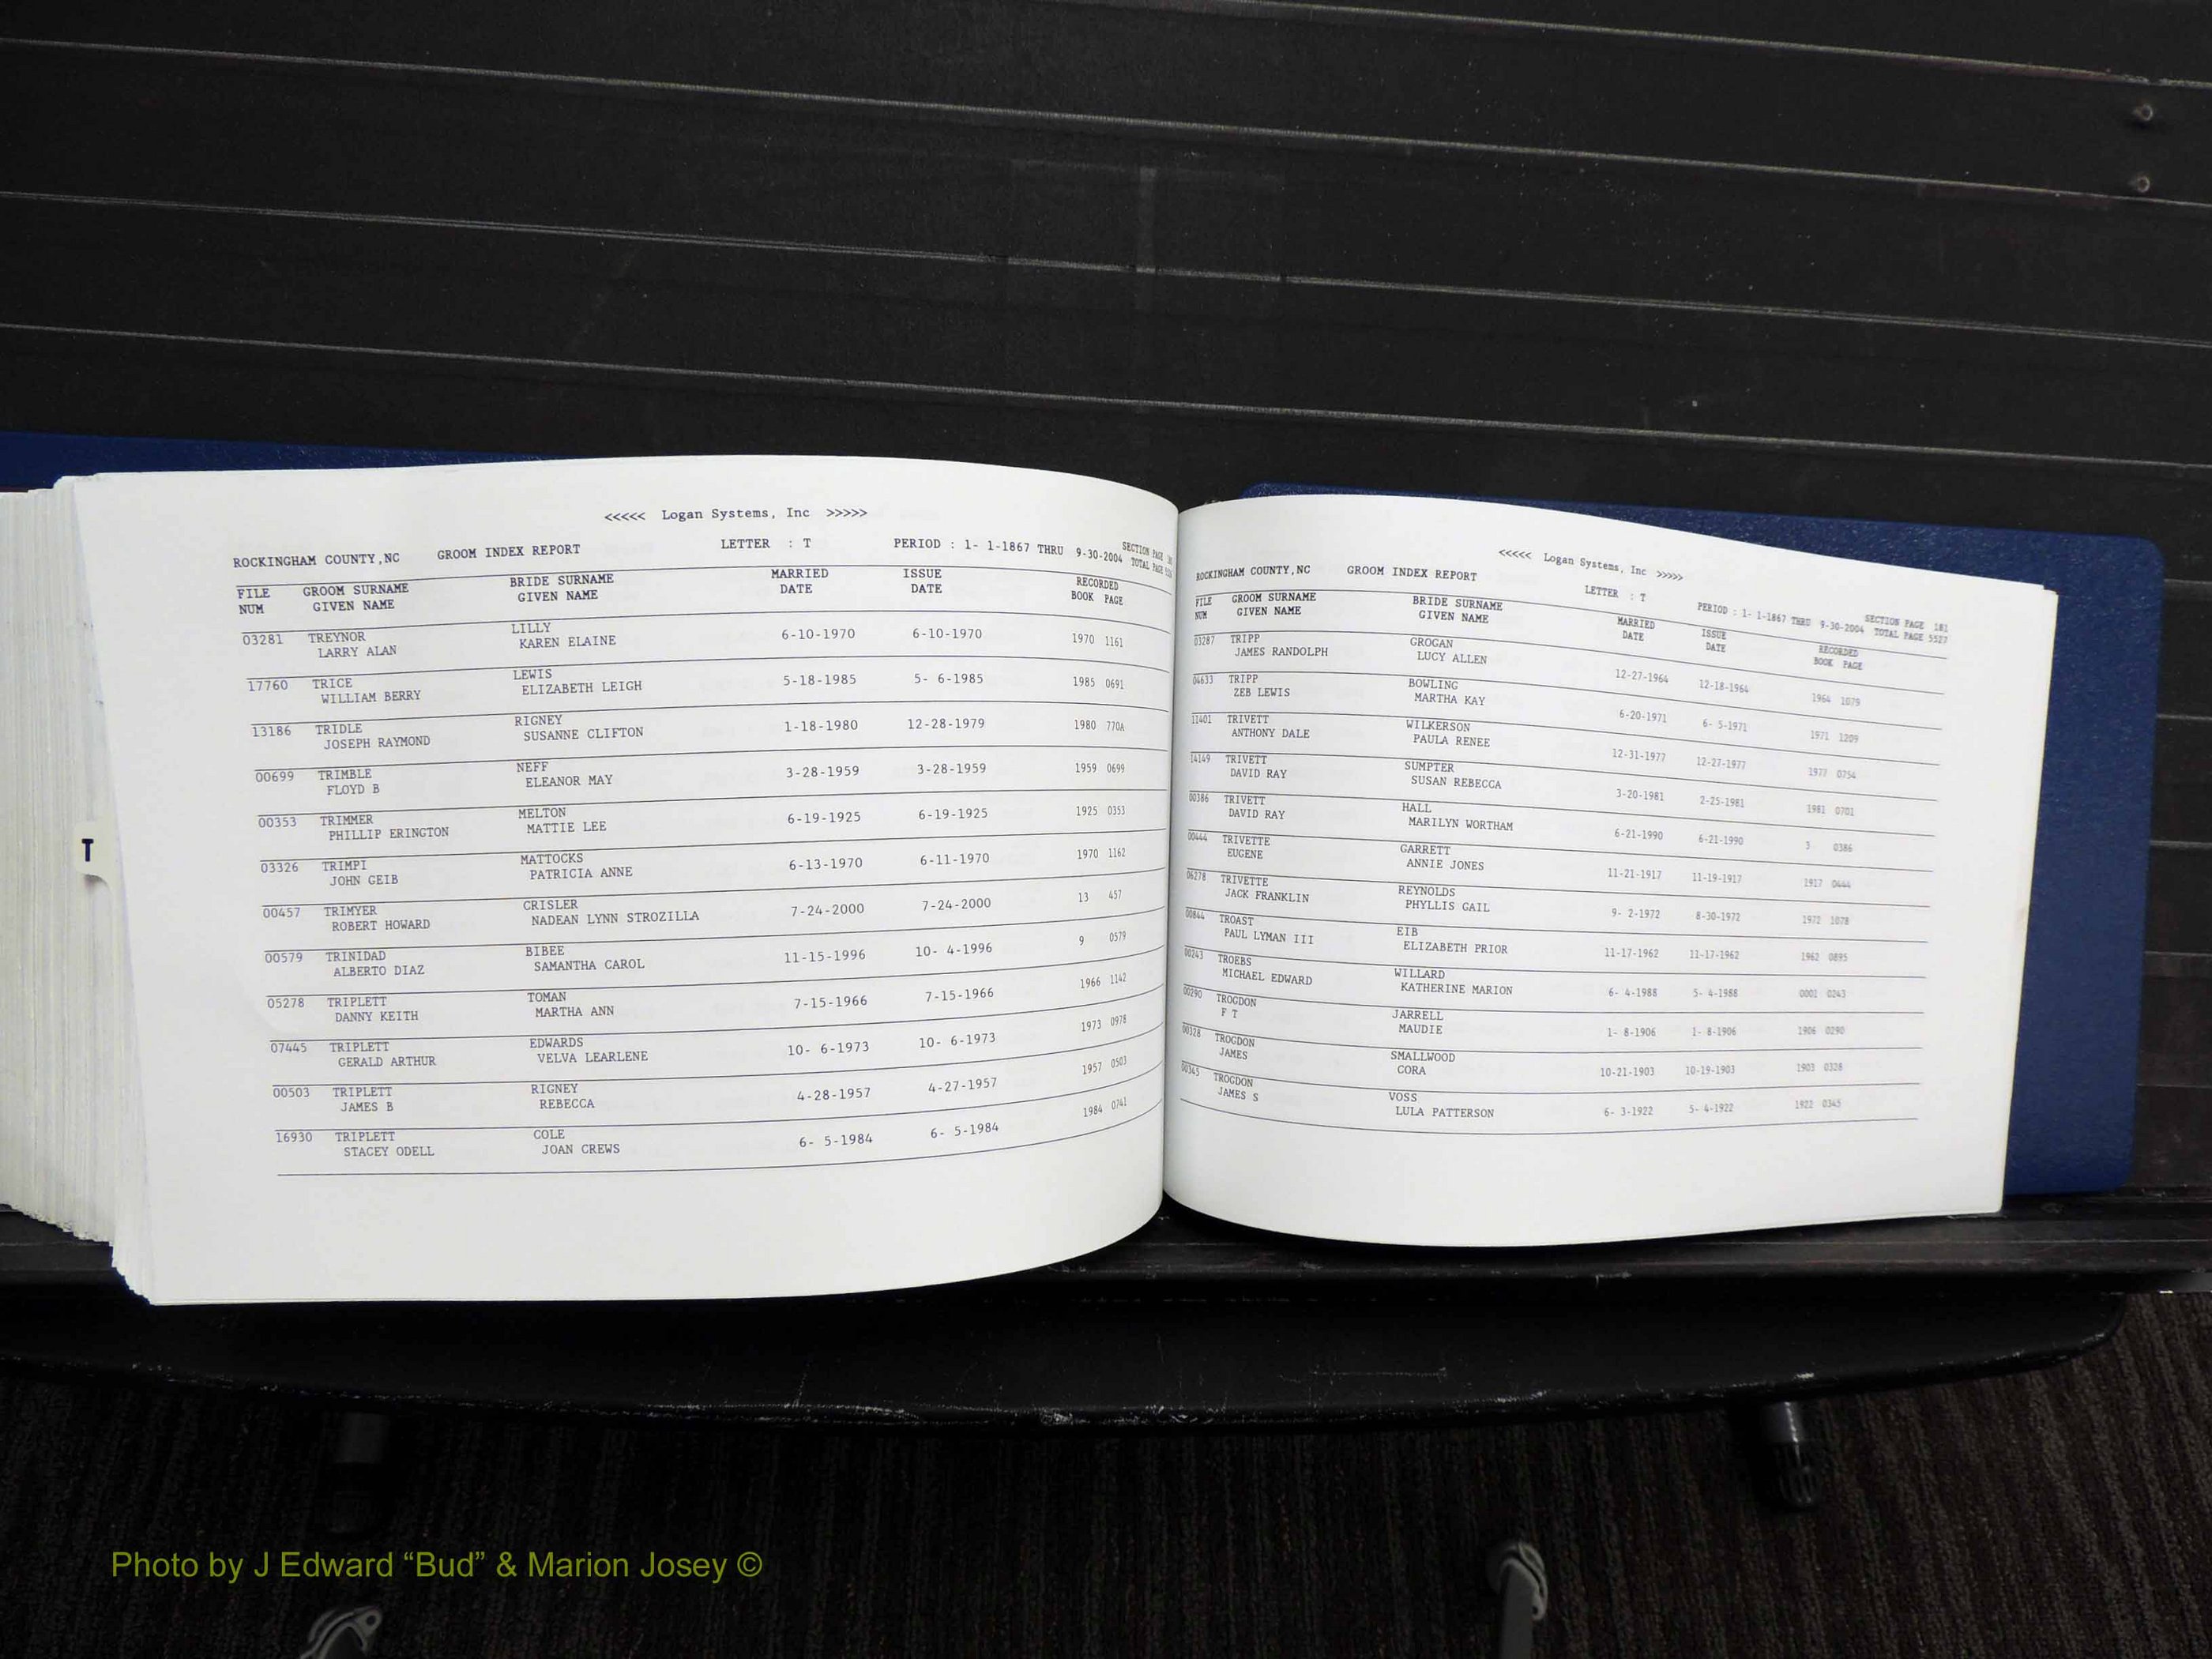 <<<<< Logan Systems, Inc >>>>>
ROCKINGHAM COUNTY,NC GROOM INDEX REPORT LETTER : T PERIOD : 1- 1-1867 THRU 9-30-2004 SECTION PAGE
TOTAL PAGE
FILE GROOM SURNAME BRIDE SURNAME MARRIED ISSUE RECORDED
NUM GIVEN NAME GIVEN NAME DATE DATE BOOK PAGE
03281 TREYNOR LILLY 6-10-1970 6-10-1970 1970 1161
LARRY ALAN KAREN ELAINE
17760 TRICE LEWIS 5-18-1985 5- 6-1985 1985 0691
WILLIAM BERRY ELIZABETH LEIGH
13186 TRIDLE RIGNEY 1-18-1980 12-28-1979 1980 770A
JOSEPH RAYMOND SUSANNE CLIFTON
00699 TRIMBLE NEFF 3-28-1959 3-28-1959 1959 0699
FLOYD B ELEANOR MAY
00353 TRIMMER MELTON 6-19-1925 6-19-1925 1925 0353
PHILLIP ERINGTON MATTIE LEE
03326 TRIMPI MATTOCKS 6-13-1970 6-11-1970 1970 1162
JOHN GEIB PATRICIA ANNE
00457 TRIMYER CRISLER 7-24-2000 7-24-2000 13 457
ROBERT HOWARD NADEAN LYNN STROZILLA
00579 TRINIDAD BIBEE 11-15-1996 10- 4-1996 9 0579
ALBERTO DIAZ SAMANTHA CAROL
05278 TRIPLETT TOMAN 7-15-1966 7-15-1966 1966 1142
DANNY KEITH MARTHA ANN
07445 TRIPLETT EDWARDS 10- 6-1973 10- 6-1973 1973 0978
GERALD ARTHUR VELVA LEARLENE
00503 TRIPLETT RIGNEY 4-28-1957 4-27-1957 1957 0503
JAMES B REBECCA
16930 TRIPLETT COLE 6- 5-1984 6- 5-1984 1984 0741
STACEY ODELL JOAN CREWS
T
<<<<< Logan Systems, Inc >>>>>
ROCKINGHAM COUNTY,NC GROOM INDEX REPORT LETTER : T PERIOD : 1- 1-1867 THRU 9-30-2004 SECTION PAGE 181
TOTAL PAGE 5527
FILE GROOM SURNAME BRIDE SURNAME MARRIED ISSUE RECORDED
NUM GIVEN NAME GIVEN NAME DATE DATE BOOK PAGE
03287 TRIPP GROGAN 12-27-1964 12-18-1964 1964 1079
JAMES RANDOLPH LUCY ALLEN
04633 TRIPP BOWLING 6-20-1971 6- 5-1971 1971 1209
ZEB LEWIS MARTHA KAY
11401 TRIVETT WILKERSON 12-31-1977 12-27-1977 1977 0754
ANTHONY DALE PAULA RENEE
14149 TRIVETT SUMPTER 3-20-1981 2-25-1981 1981 0701
DAVID RAY SUSAN REBECCA
00386 TRIVETT HALL 6-21-1990 6-21-1990 3 0386
DAVID RAY MARILYN WORTHAM
00444 TRIVETTE GARRETT 11-21-1917 11-19-1917 1917 0444
EUGENE ANNIE JONES
06278 TRIVETTE REYNOLDS 9- 2-1972 8-30-1972 1972 1078
JACK FRANKLIN PHYLLIS GAIL
00844 TROAST EIB 11-17-1962 11-17-1962 1962 0895
PAUL LYMAN III ELIZABETH PRIOR
00243 TROEBS WILLARD 6- 4-1988 5- 4-1988 0001 0243
MICHAEL EDWARD KATHERINE MARION
00290 TROGDON JARRELL 1- 8-1906 1- 8-1906 1906 0290
F T MAUDIE
00328 TROGDON SMALLWOOD 10-21-1903 10-19-1903 1903 0328
JAMES CORA
00345 TROGDON VOSS 6- 3-1922 5- 4-1922 1922 0345
JAMES S LULA PATTERSON
Photo by J Edward “Bud” & Marion Josey ©